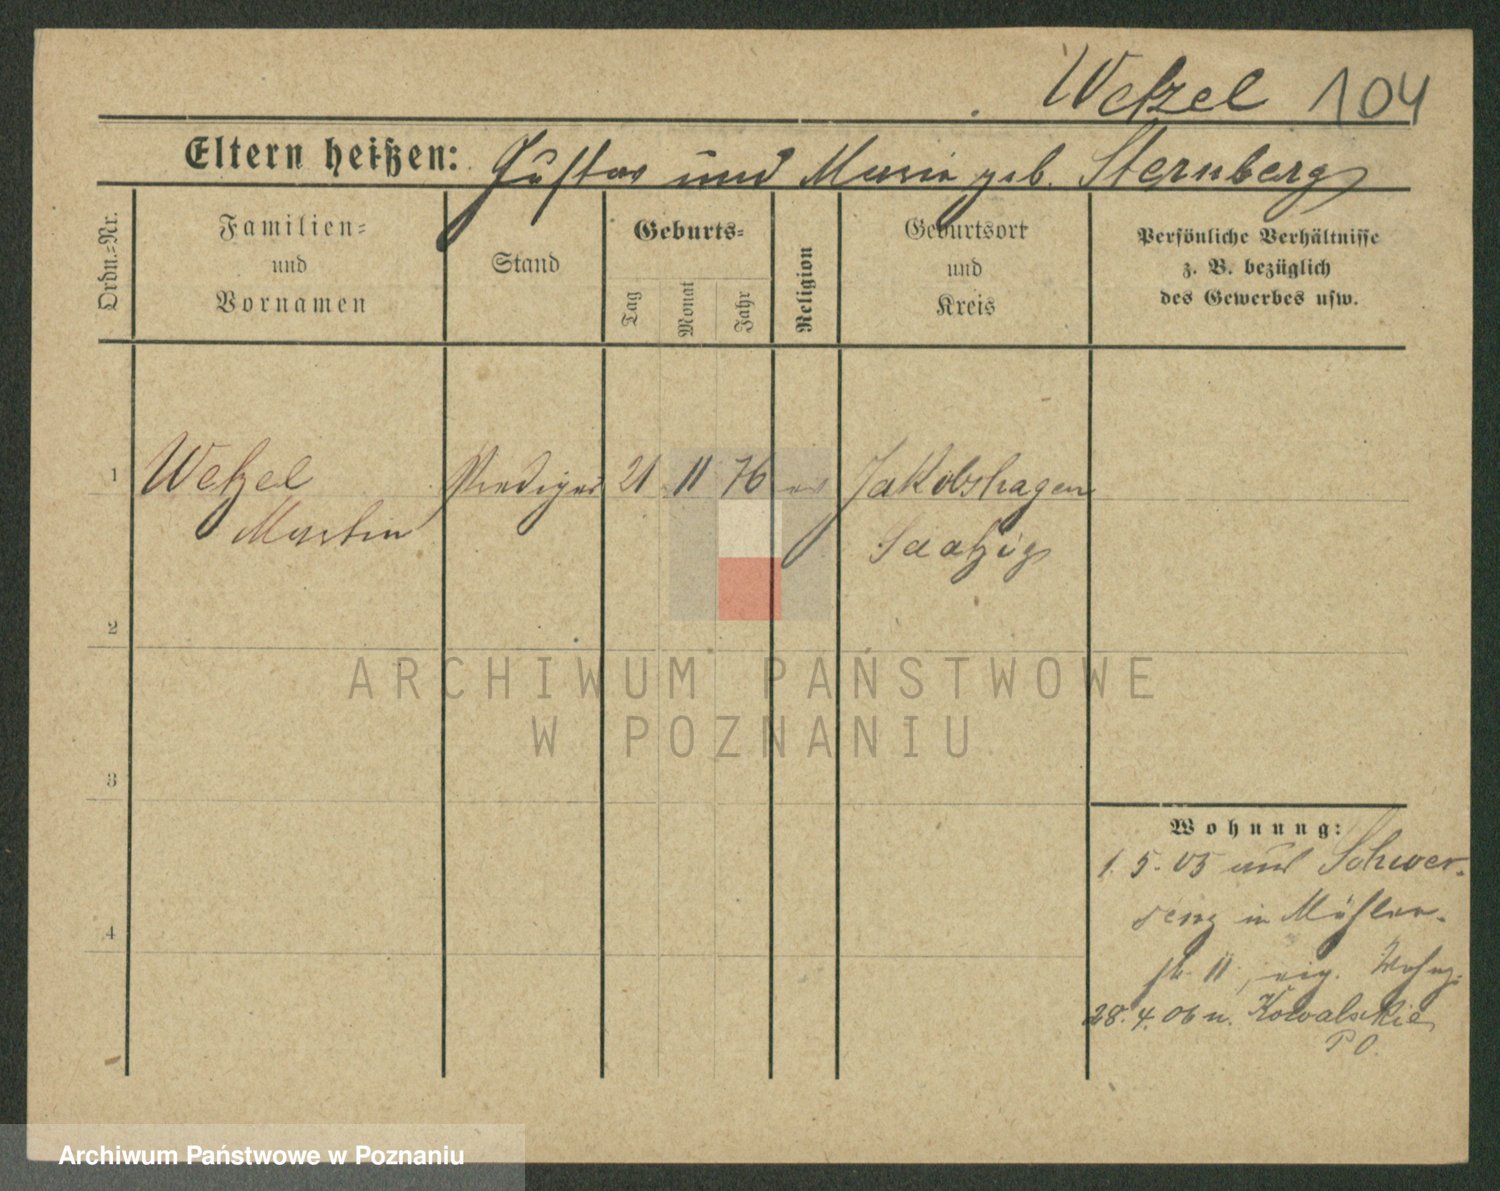 Wetzel 104
Eltern heißen: Gustav und Marie geb. Sternberg
Ordn.=Nr.
Familien=
und
Vornamen
Stand
Geburts=
Tag
Monat
Jahr
Religion
Geburtsort
und
Kreis
Persönliche Verhältnisse
z. B. bezüglich
des Gewerbes usw.
1 Wetzel Prediger 21 11 76 ev Jakobshagen
Martin Saatzig
2
3
4
Wohnung:
1. 5. 05 aus Schwer-
senz in Mühlen-
str. 11, eig. Wohng.
28. 4. 06 n. Kowalskie
P O.
ARCHIWUM PAŃSTWOWE
W POZNANIU
Archiwum Państwowe w Poznaniu